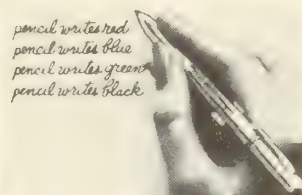 pencil writes red
pencil writes blue
pencil writes green
pencil writes black